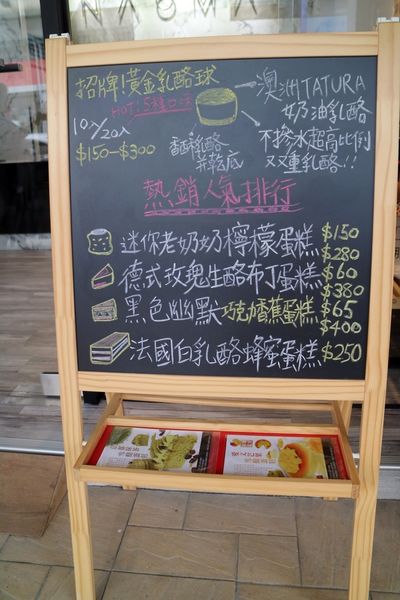 NAOMA
招牌!黃金乳酪球
HOT! 5種口味
10入/20入
$150~$300
澳洲TATURA
奶油乳酪
不摻水超高比例
雙重乳酪!!
香醇乳酪
熱銷人氣排行
迷你老奶奶檸檬蛋糕 $150
$280
德式玫瑰生酪布丁蛋糕 $60
$380
黑色幽默巧克力香蕉蛋糕 $65
$400
法國白乳酪蜂蜜蛋糕 $250